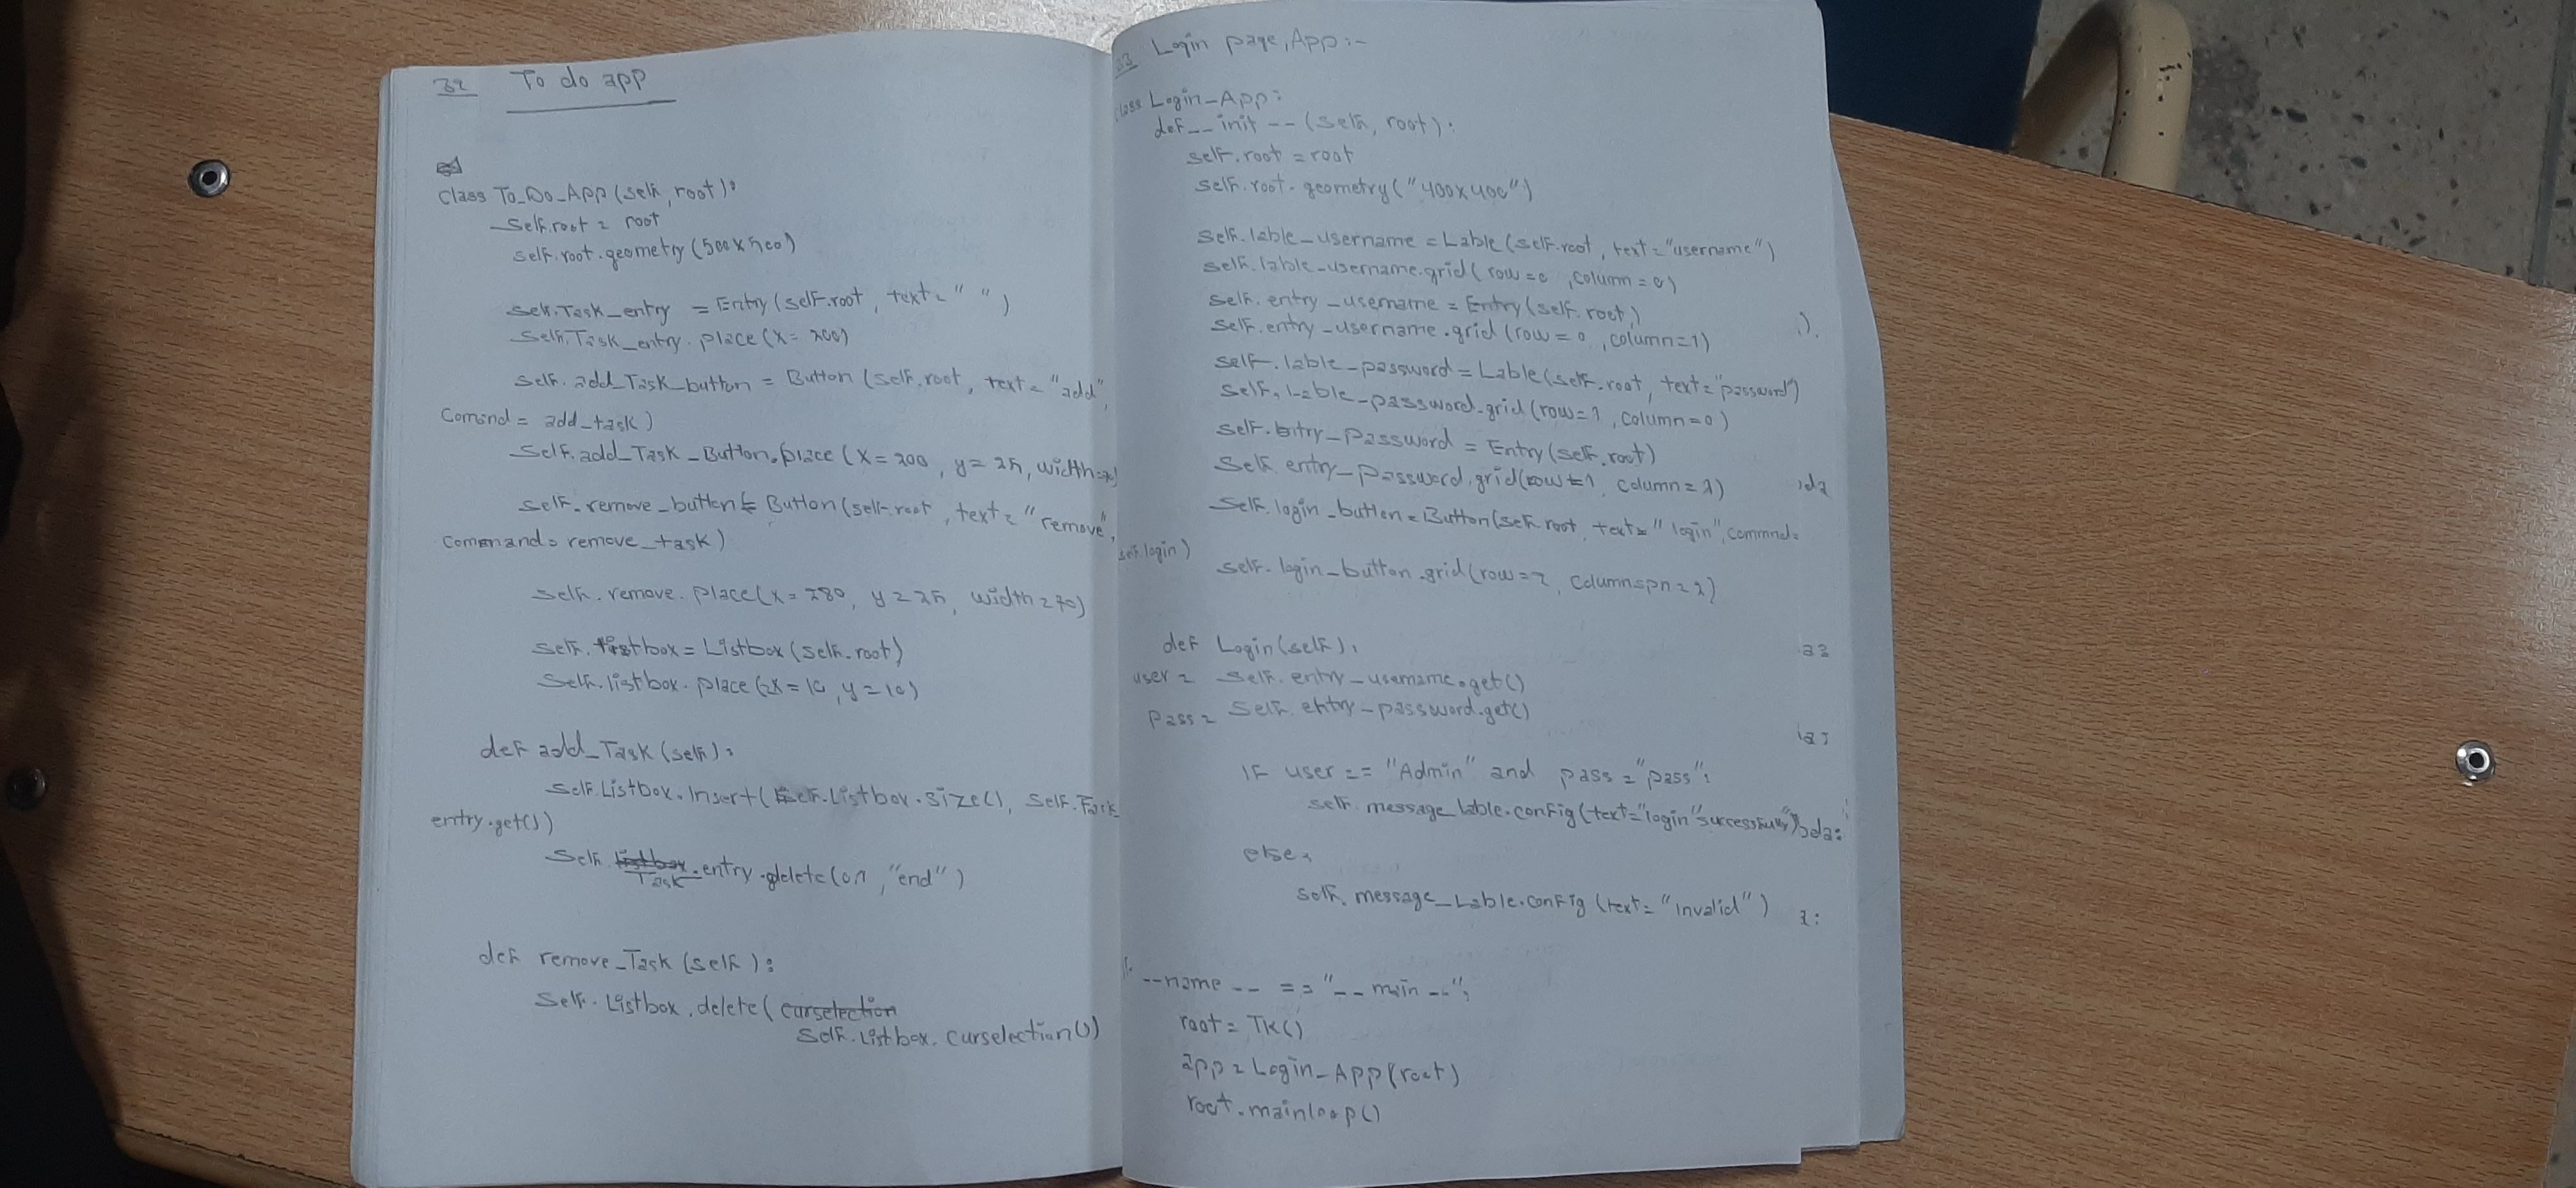 32
To do app
Class To_Do_App (self, root):
self.root = root
self.root.geometry (500x500)
self.Task_entry = Entry (self.root, text=" ")
self.Task_entry.place (x=200)
self.add_Task_button = Button (self.root, text="add",
Comand = add_task)
self.add_Task_Button.place (x=200, y=25, width=
self.remove_button = Button (self.root, text="remove",
Command= remove_task)
self.remove.place (x=280, y=25, width=70)
self.listbox = Listbox (self.root)
self.listbox.place (x=10, y=10)
def add_Task (self):
self.Listbox.insert (self.Listbox.size(), self.Task
entry.get())
self.Task.entry.delete (0, "end")
def remove_Task (self):
self.Listbox.delete (curselection
self.Listbox.curselection())
33 Login page, App:-
class Login_App:
def __init__ (self, root):
self.root = root
self.root.geometry ("400x400")
self.lable_username = Lable (self.root, text="username")
self.lable_username.grid (row=0, column=0)
self.entry_username = Entry (self.root)
self.entry_username.grid (row=0, column=1)
self.lable_password = Lable (self.root, text="password")
self.lable_password.grid (row=1, column=0)
self.entry_password = Entry (self.root)
self.entry_password.grid (row=1, column=1)
self.login_button = Button (self.root, text="login", command=
self.login)
self.login_button.grid (row=2, columnspn=2)
def Login (self):
user = self.entry_username.get()
pass = self.entry_password.get()
if user == "Admin" and pass = "pass":
self.message_lable.config (text="login successfully")
else:
self.message_Lable.config (text="invalid")
if __name__ == "__main__":
root = Tk()
app = Login_App (root)
root.mainloop()